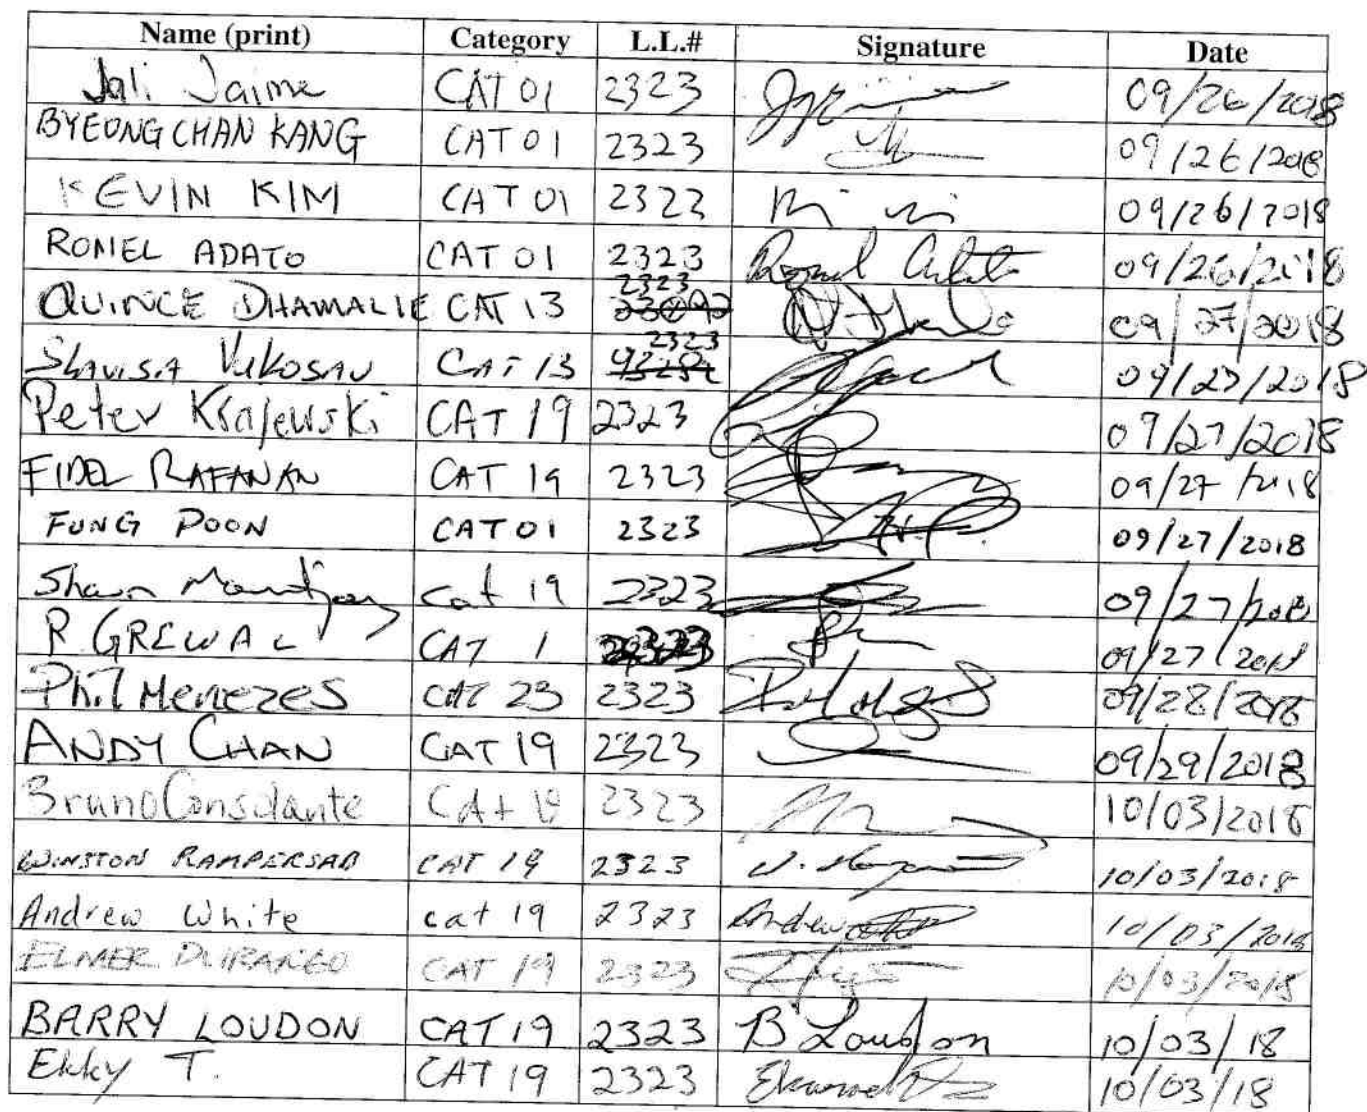 Name (print) Category L.L.# Signature Date
Jali Jaime CAT 01 2323 09/26/2018
BYEONG CHAN KANG CAT 01 2323 09/26/2018
KEVIN KIM CAT 01 2323 09/26/2018
ROMEL ADATO CAT 01 2323 Romel Adato 09/26/2018
QUINCE DHAMALIE CAT 13 2323 09/27/2018
SLAVISA VUKOSAV CAT 13 2323 09/27/2018
Peter Krajewski CAT 19 2323 09/27/2018
FIDEL RAFANAN CAT 19 2323 09/27/2018
FUNG POON CAT 01 2323 09/27/2018
Shawn cat 19 2323 09/27/2018
R. GREWAL CAT 1 2323 09/27/2018
Phil Menezes CAT 23 2323 09/28/2018
ANDY CHAN CAT 19 2323 09/29/2018
Bruno Consolante CAt 2323 10/03/2018
WINSTON RAMPERSAD CAT 19 2323 10/03/2018
Andrew White cat 19 2323 Andrew 10/03/2018
ELMER DURANGO CAT 19 2323 10/03/2018
BARRY LOUDON CAT 19 2323 B Loudon 10/03/18
Ekky T. CAT 19 2323 10/03/18